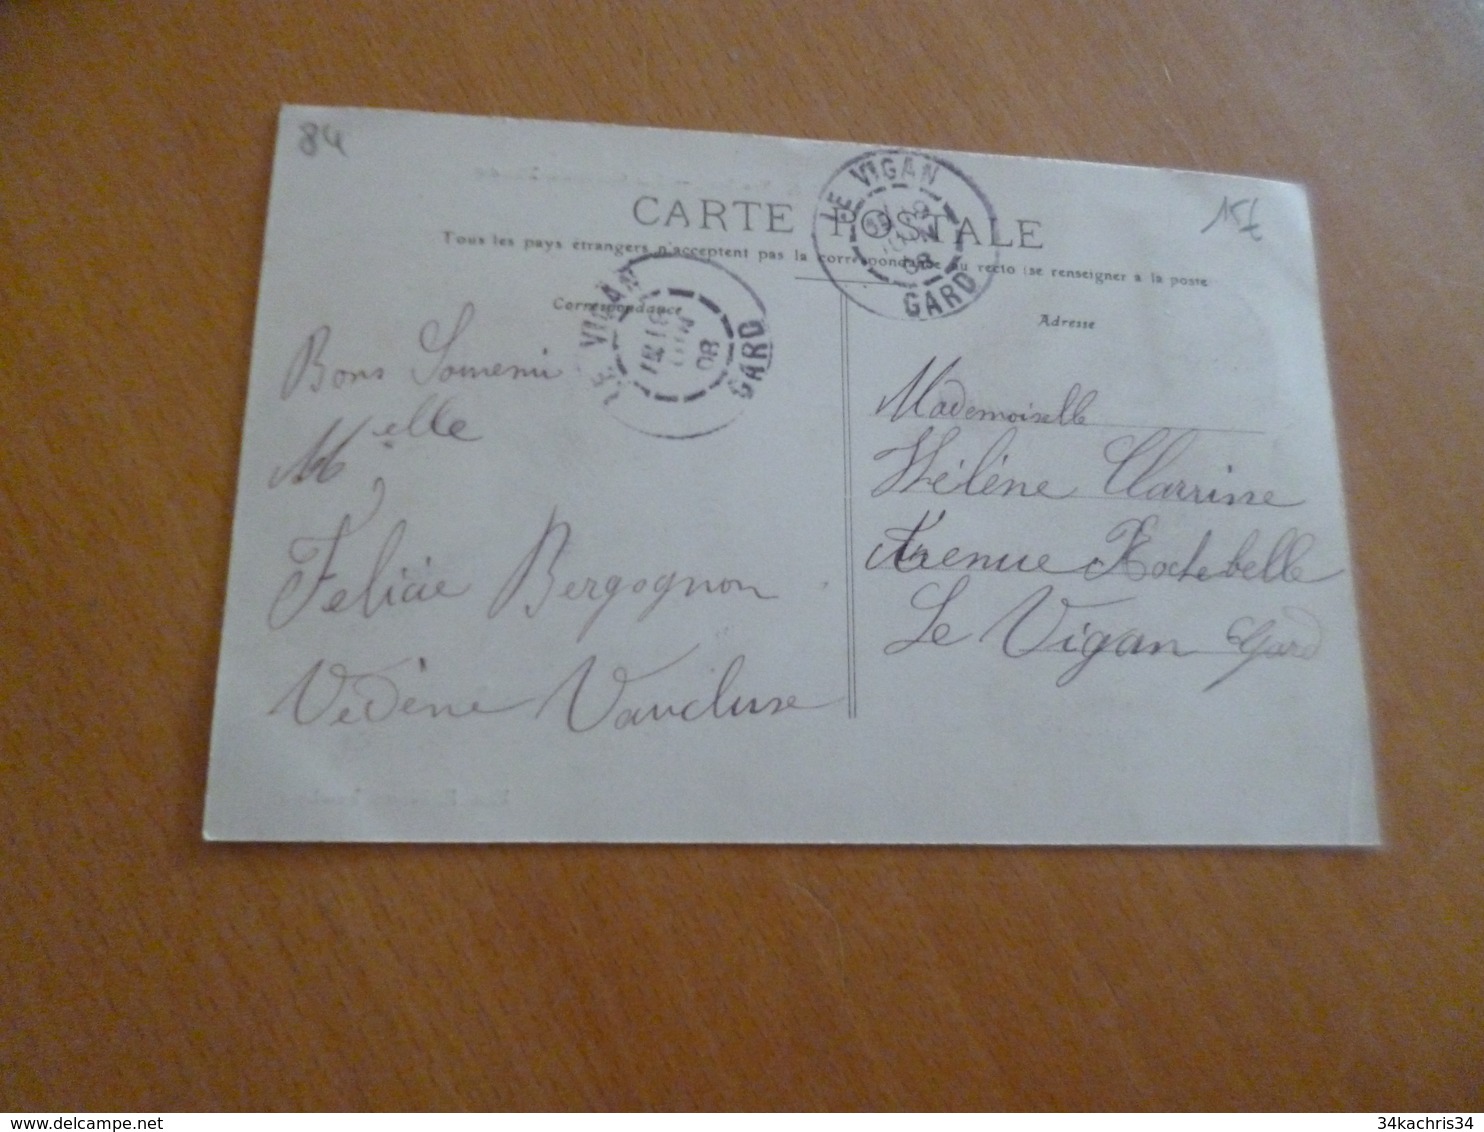 84
15€
CARTE POSTALE
Tous les pays étrangers n'acceptent pas la correspondance au recto (se renseigner à la poste
Correspondance
Adresse
LE VIGAN
GARD
08
LE VIGAN
GARD
08
Bons Souvenir
Melle
Felicie Bergognon
Vedène Vaucluse
Mademoiselle
Hélène Clarrisse
Avenue Rochebelle
Le Vigan Gard
34kachris34